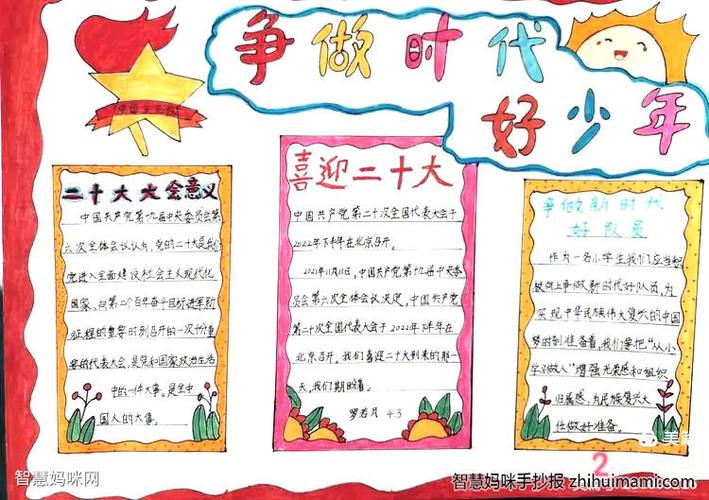 争做时代
好少年
二十大大会意义
中国共产党第十九届中央委员会第
六次全体会议认为，党的二十大是我们
党进入全面建设社会主义现代化
国家、向第二个百年奋斗目标进军新
征程的重要时刻召开的一次十分重
要的代表大会，是党和国家政治生活
中的一件大事。是全中
国人的大事。
喜迎二十大
中国共产党第二十次全国代表大会于
2022年下半年在北京召开。
2021年11月11日，中国共产党第十九届中央委
员会第六次全体会议决定，中国共产党
第二十次全国代表大会于2022年下半年在
北京召开。我们喜迎二十大到来的那一
天，我们期待着。
罗若月 4.3
争做新时代
好队员
作为一名小学生我们应当积
极向上争做新时代好队员，为
实现中华民族伟大复兴的中国
梦时刻准备着，我们要把“从小
学习做人”增强光荣感和组织
归属感，为民族复兴大
任做好准备。
2
智慧妈咪网
智慧妈咪手抄报 zhihuimami.com